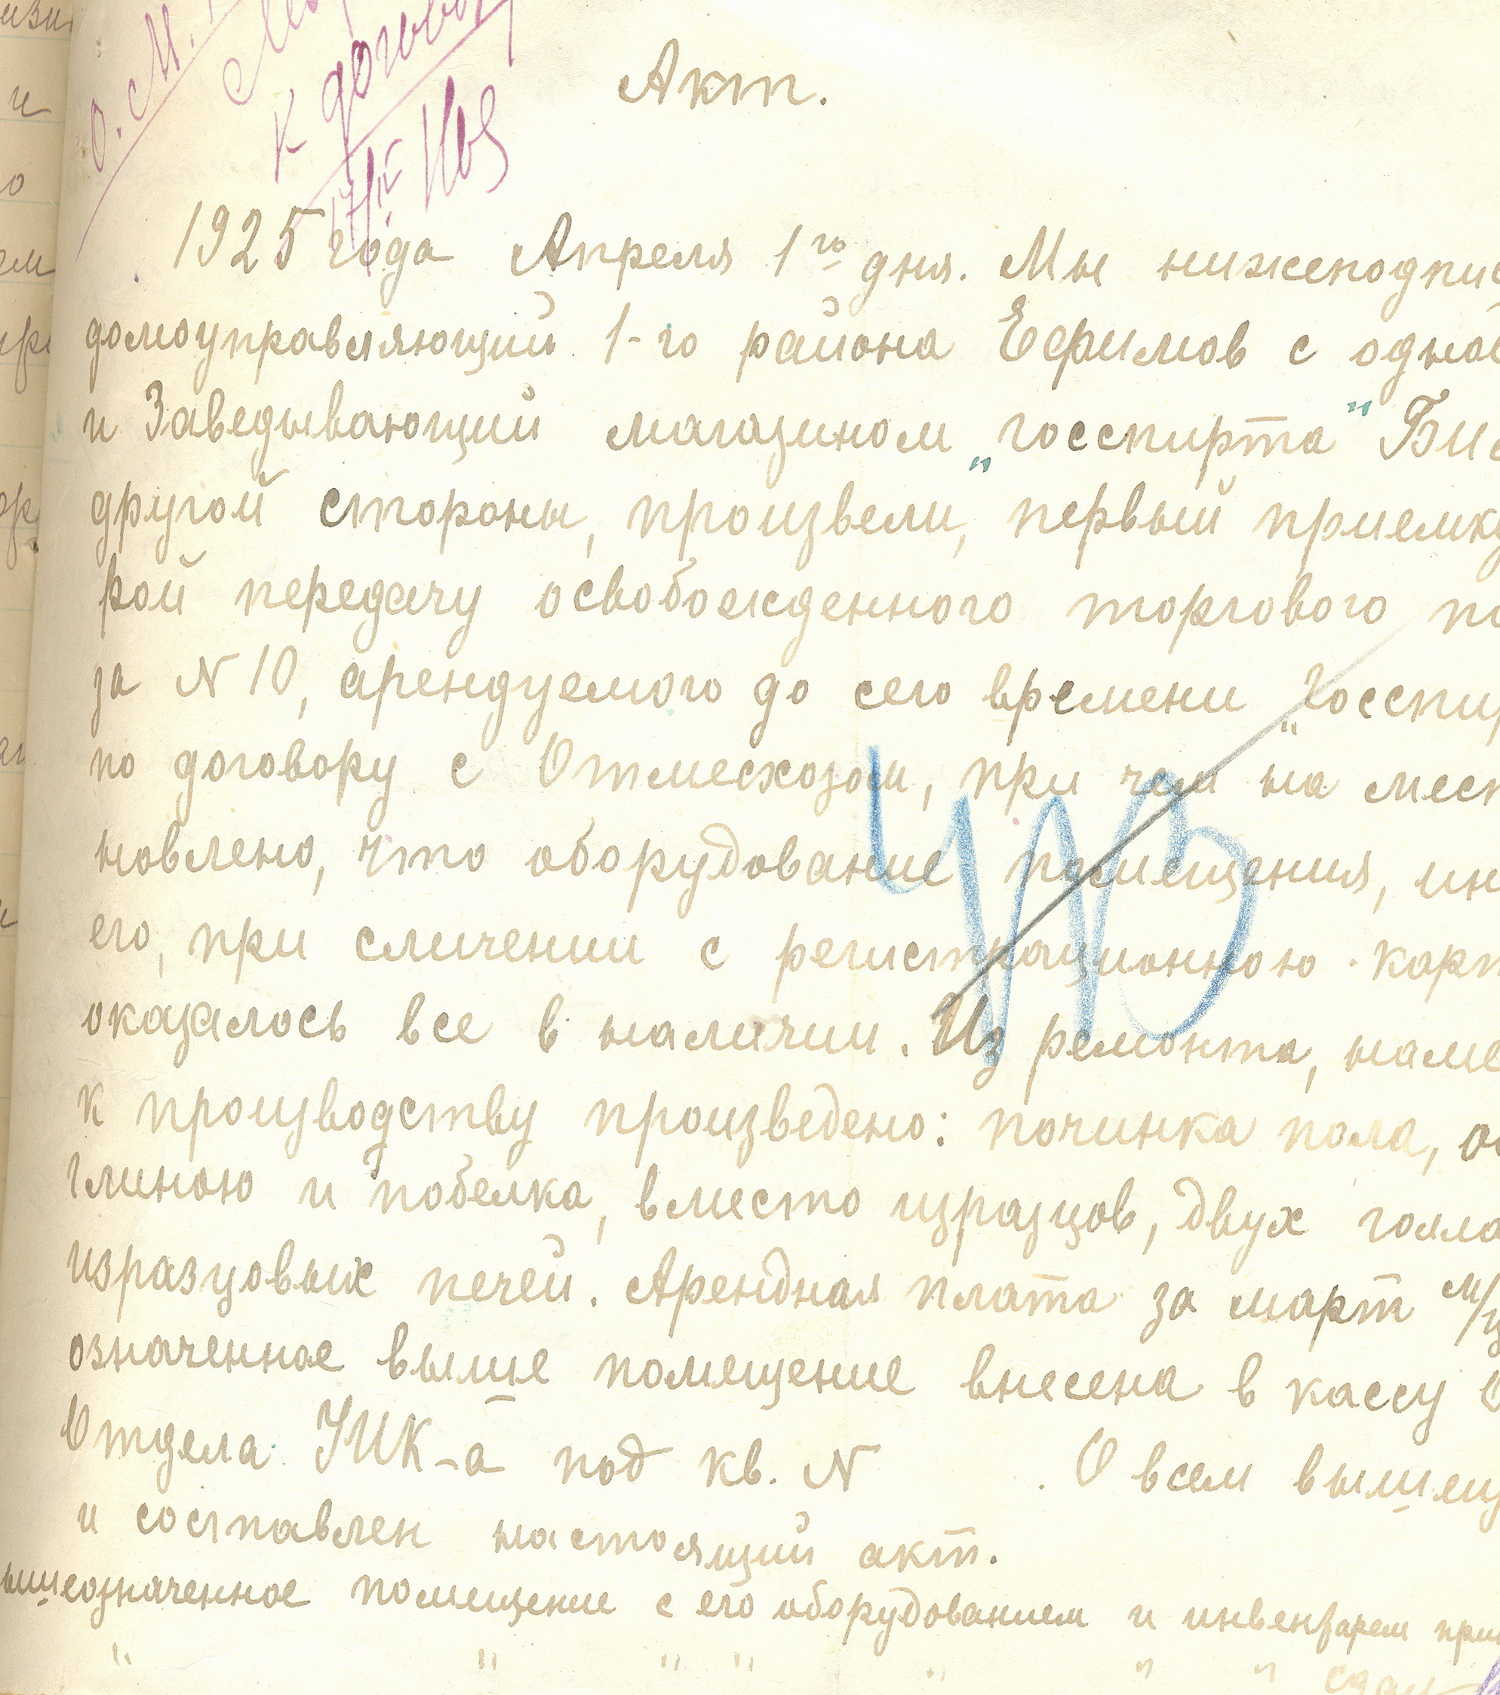 О. М.
к договору
17/IV
Акт.
1925 года Апреля 1го дня. Мы нижеподпис
домоуправляющий 1-го района Ефимов с одной
и Заведывающий магазином „госспирта" Би
другой стороны, произвели, первый приемку
рой передачу освобожденного торгового по
за N 10, арендуемого до сего времени „Госспир
по договору с Отместхозом, при чем на мест
новлено, что оборудование помещения, ин
его, при сличении с регистрационною карт
оказалось все в наличии. Из ремонта, наме
к производству произведено: починка пола, об
глиною и побелка, вместо изразцов, двух голла
изразцовых печей. Арендная плата за март м/ц
означенное выше помещение внесена в кассу О
Отдела УИК-а под кв. N . О всем вышеиз
и составлен настоящий акт.
ышеозначенное помещение с его оборудованием и инвентарем при
" " " " " " " сдал